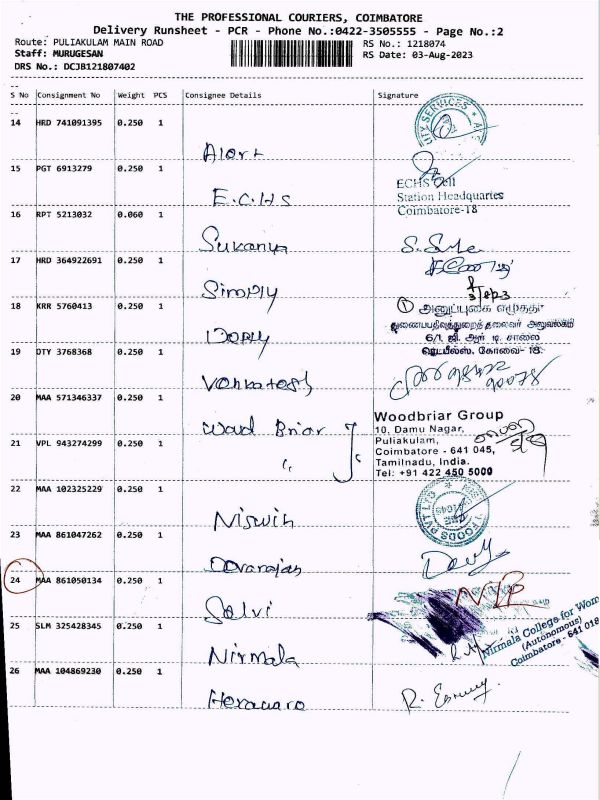 THE PROFESSIONAL COURIERS, COIMBATORE
Delivery Runsheet - PCR - Phone No.:0422-3505555 - Page No.:2
Route: PULIAKULAM MAIN ROAD RS No.: 1218074
Staff: MURUGESAN RS Date: 03-Aug-2023
DRS No.: DCJB121807402
S No Consignment No Weight PCS Consignee Details Signature
14 HRD 741091395 0.250 1
Alert
15 PGT 6913279 0.250 1
E.C.H.S
ECHS Cell
Station Headquarters
Coimbatore-18
16 RPT 5213032 0.060 1
Sukanya
17 HRD 364922691 0.250 1
Simply
18 KRR 5760413 0.250 1
அனுப்புகை எழுத்தர்
துணைபதிவுத்துறைத் தலைவர் அலுவலகம்
6/1. ஜி. ஆர். டி. சாலை
ரெட்பீல்ஸ். கோவை - 18.
19 DTY 3768368 0.250 1
Venkatesh
20 MAA 571346337 0.250 1
Wood Briar
Woodbriar Group
10, Damu Nagar,
Puliakulam,
Coimbatore - 641 045,
Tamilnadu, India.
Tel: +91 422 450 5000
21 VPL 943274299 0.250 1
22 MAA 102325229 0.250 1
Niswin
FOODS PVT LTD
23 MAA 861047262 0.250 1
Devarajan
24 MAA 861050134 0.250 1
Selvi
25 SLM 325428345 0.250 1
Nirmala
Nirmala College for Wom
(Autonomous)
Coimbatore - 641 018
26 MAA 104869230 0.250 1